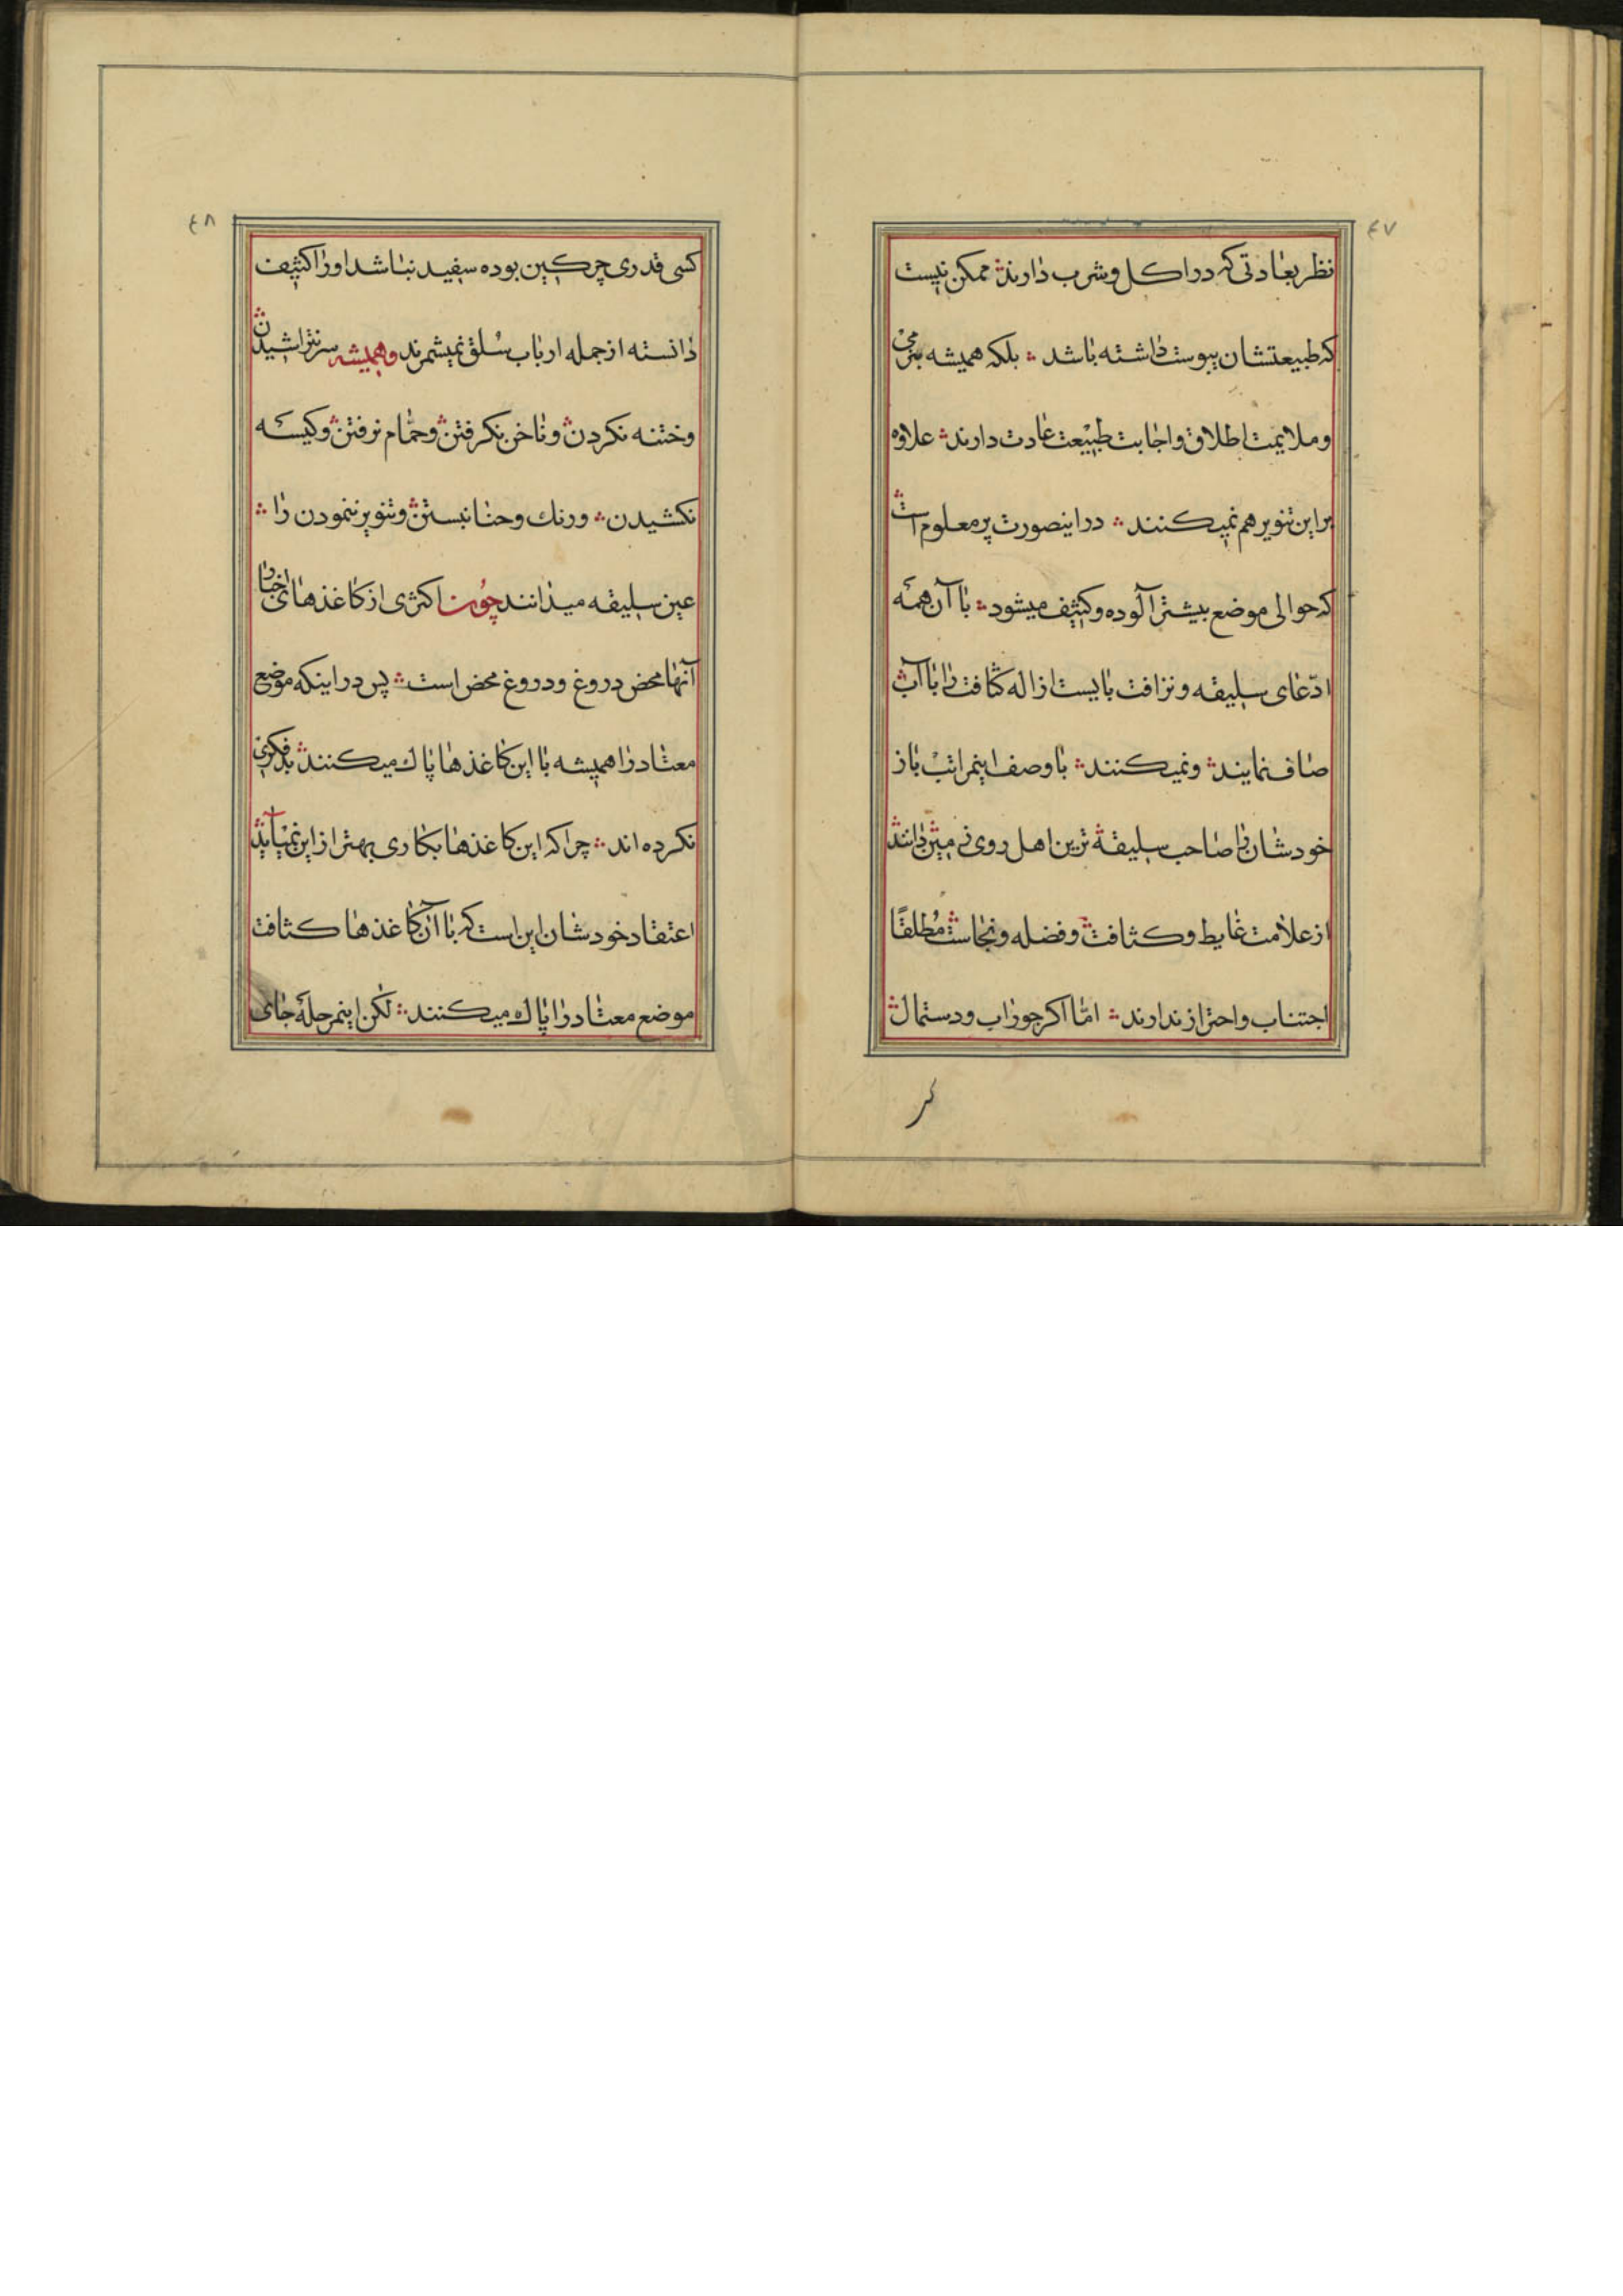 ٤٧
نظر بعادتی که در اکل و شرب دارند؞ ممکن نیست
که طبیعتشان یبوست داشته باشد ؞ بلکه همیشه بنرمی
و ملایمت اطلاق و اجابت طبیعت عادت دارند؞ علاوه
بر این تنویر هم نمیکنند ؞ در اینصورت پر معلوم است؞
که حوالی موضع بیشتر آلوده و کثیف میشود؞ با آن همه
ادّعای سلیقه و نزافت بایست ازاله کثافت را با آب؞
صاف نمایند؞ و نمیکنند؞ با وصف اینمراتب باز
خودشان را صاحب سلیقۀ ترین اهل روی زمین دانند؞
از علامت غایط و کثافت؞ و فضله و نجاست؞ مُطلقًا
اجتناب و احتراز ندارند؞ امّا اکر جوراب و دستمال؞
کر
٤٨
کسی قدری چرکین بوده سفید نباشد او را کثیف
دانسته از جمله ارباب سُلق نمیشمرند و همیشه سر نتراشیدن؞
و ختنه نکردن؞ و ناخن نکرفتن؞ و حمّام نرفتن؞ و کیسه
نکشیدن؞ و رنك و حنا نبستن؞ و تنویر ننمودن را ؞
عین سلیقه میدانند چون اکثری از کاغذهای اخبار
آنها محض دروغ و دروغ محض است؞ پس در اینکه موضع
معتاد را همیشه با این کاغذها پاك میکنند؞ بد فکری
نکرده اند؞ چرا که این کاغذها بکاری بهتر از این نمیآید؞
اعتقاد خودشان این است که با آن کاغذها کثافت
موضع معتاد را پاك میکنند؞ لکن اینمرحله جای